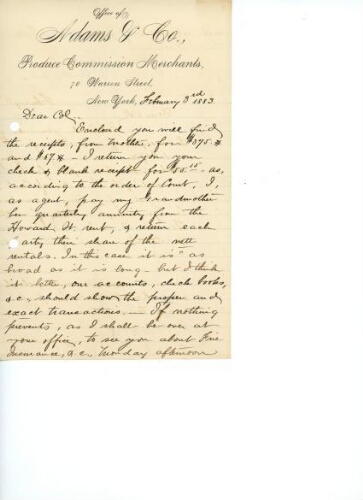 Office of
Adams & Co.,
Produce Commission Merchants,
70 Warren Street,
New York, February 3rd 1883.
Dear Col.
Enclosed you will find
the receipts, from brother, for $375.
and $57. - I return you your
check & blank receipt for $50 - as,
according to the order of Court, I,
as agent, pay my Grandmother
her quarterly annuity from the
Howard St. rent, & return each
party their share of the nett
rentals. In this case it is "as
broad as it is long - but I think
it better, our accounts, check books,
&c, should show the proper and
exact transactions. - If nothing
prevents, as I shall be over at
your office, to see you about Fire
Insurance, &c, Monday afternoon